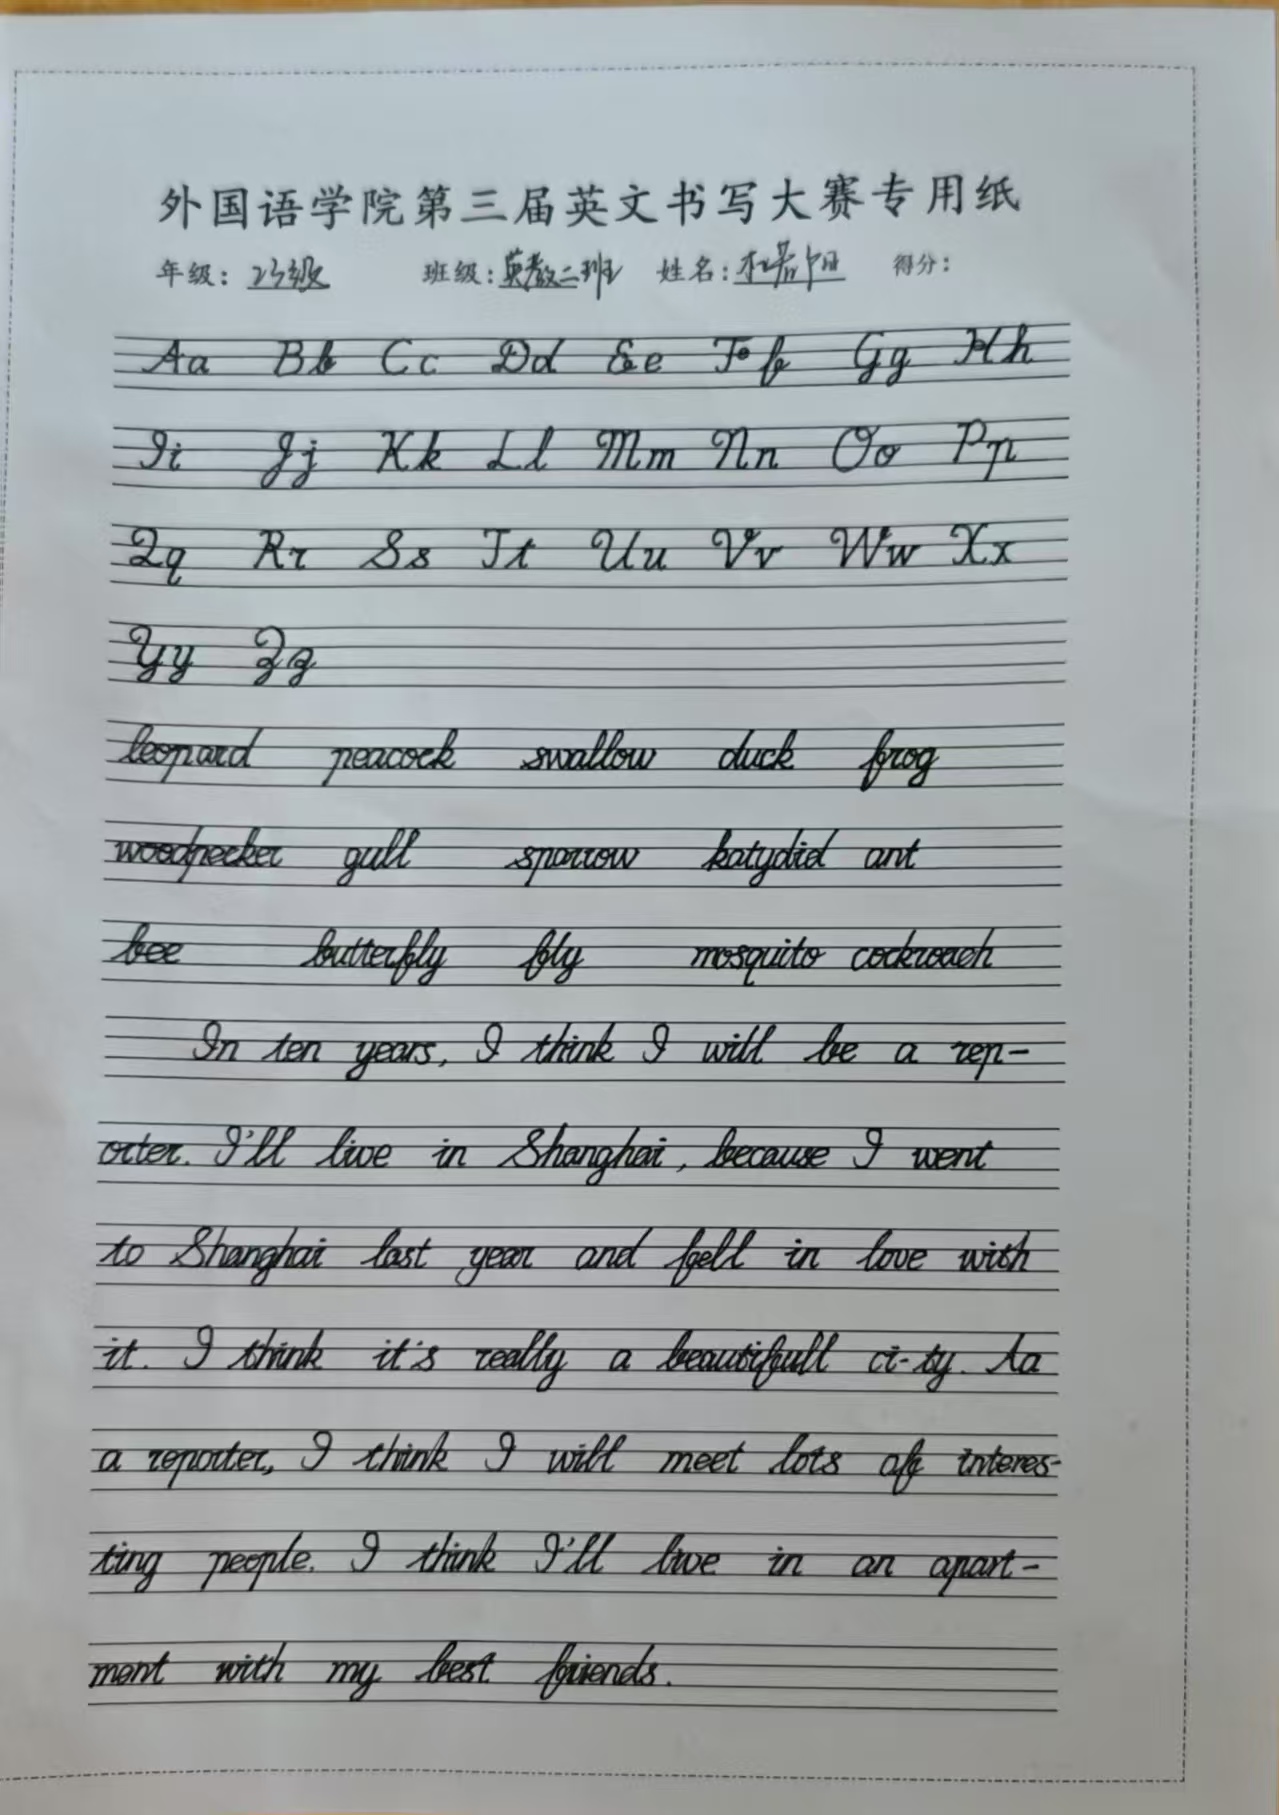 外国语学院第三届英文书写大赛专用纸
年级: 23级 班级: 英教二班 姓名: 杜若阳 得分:
Aa Bb Cc Dd Ee Ff Gg Hh
Ii Jj Kk Ll Mm Nn Oo Pp
Qq Rr Ss Tt Uu Vv Ww Xx
Yy Zz
leopard peacock swallow duck frog
woodpecker gull sparrow katydid ant
bee butterfly fly mosquito cockroach
In ten years, I think I will be a rep-
orter. I'll live in Shanghai, because I went
to Shanghai last year and fell in love with
it. I think it's really a beautifull ci-ty. Aa
a reporter, I think I will meet lots of interes-
ting people. I think I'll live in an apart-
ment with my best friends.